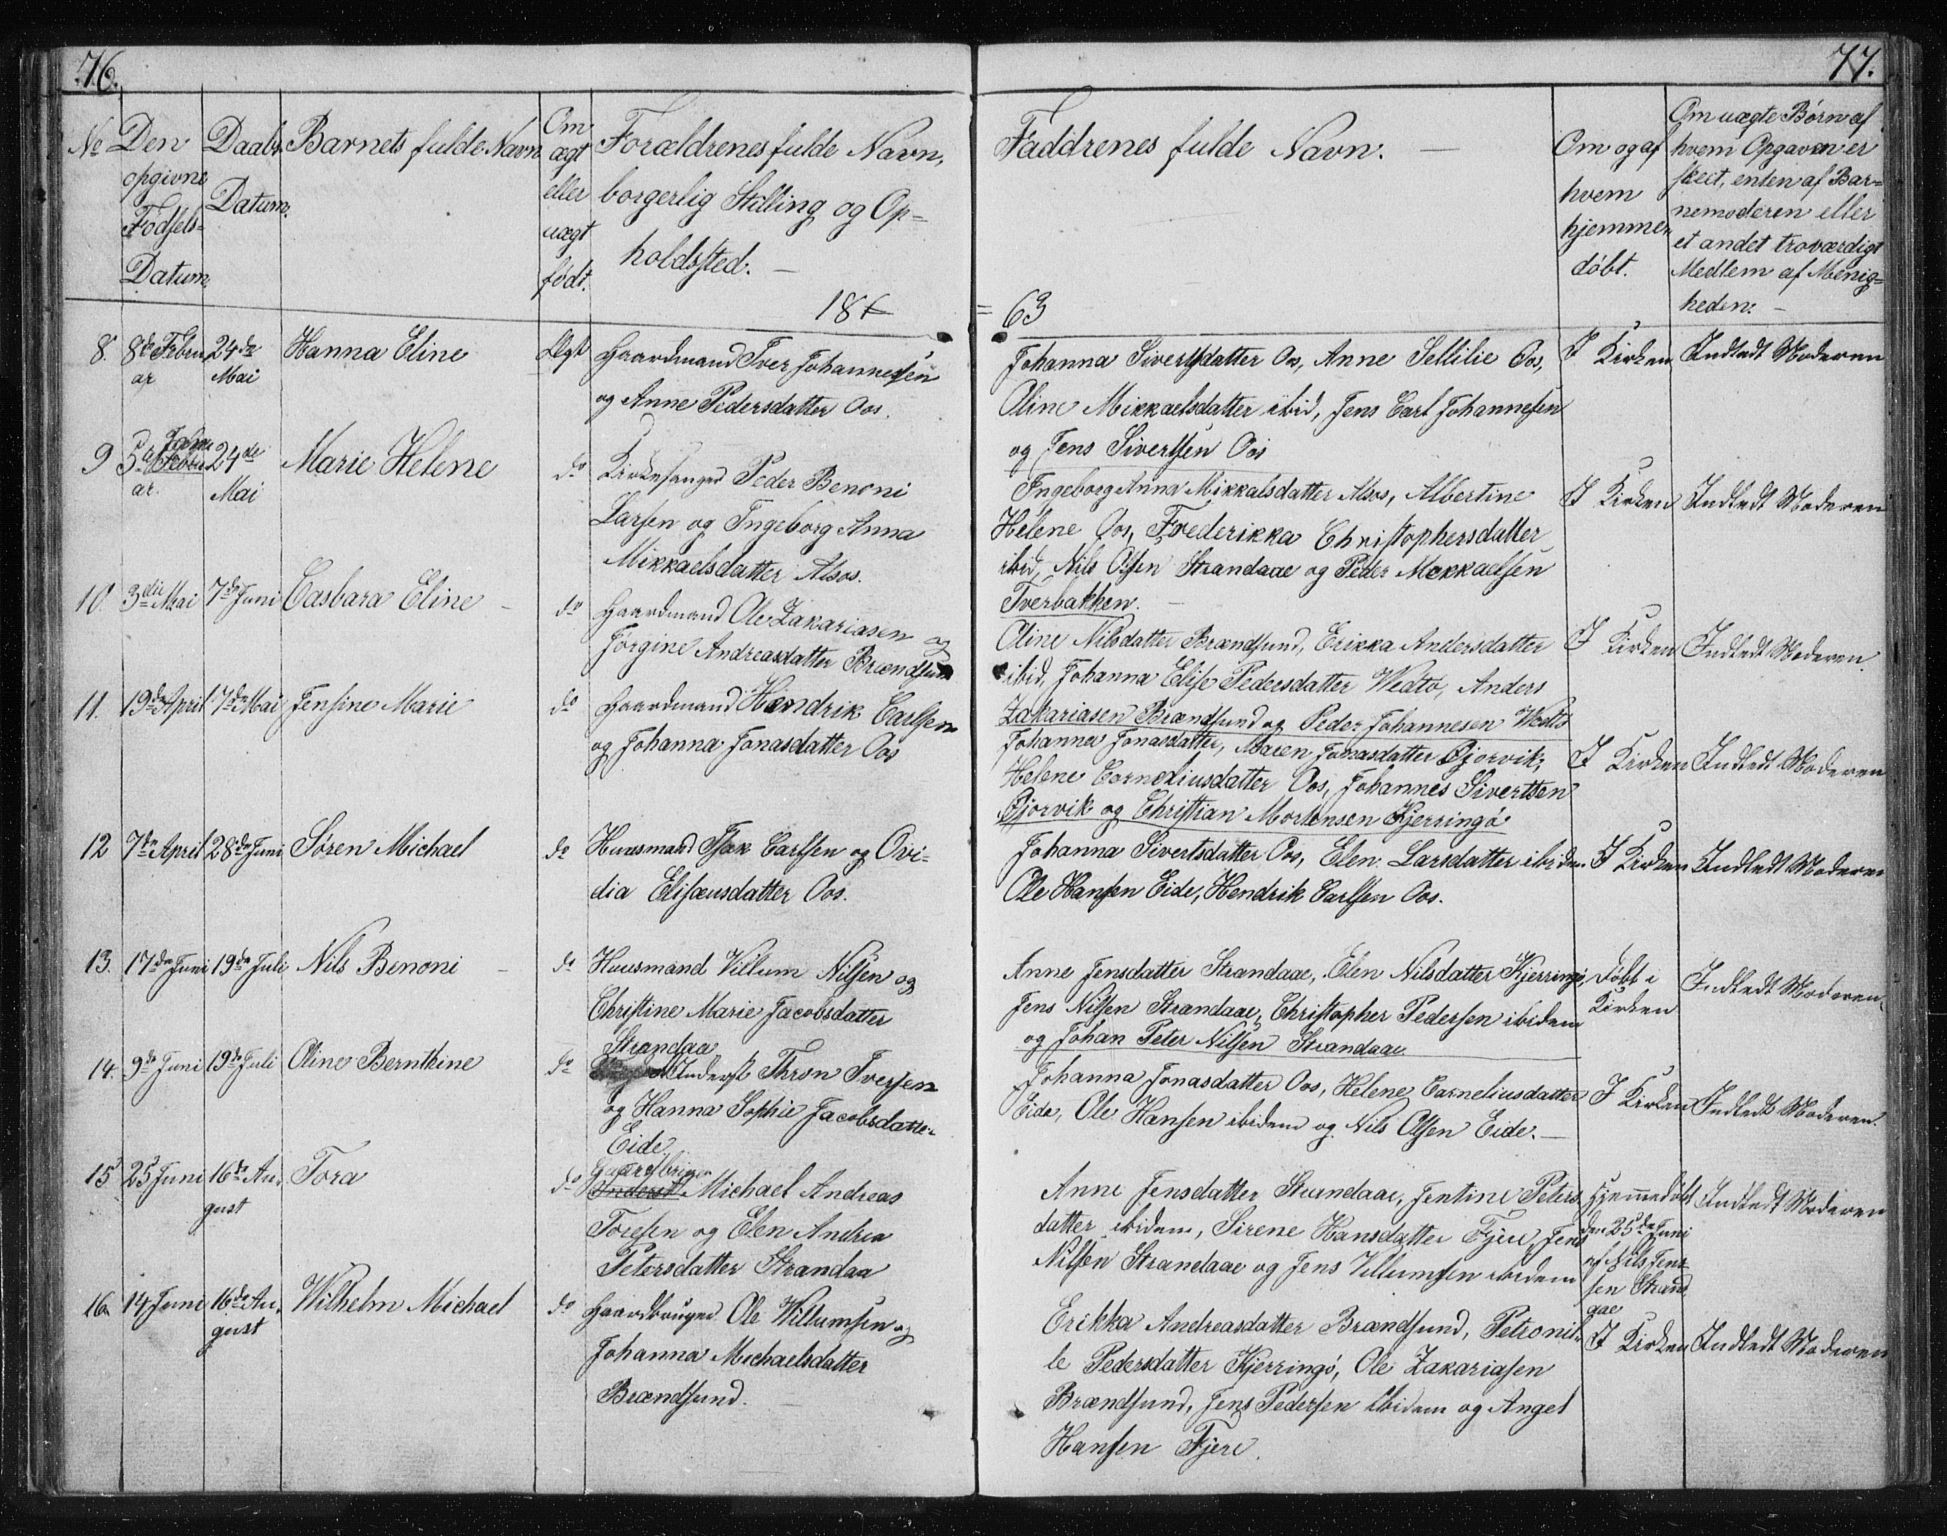 76.
77.
No
Den
opgivne
Fødsels-
Datum
Daabs
Datum.
Barnets fulde Navn
Om
ægt
eller
uægt
født.
Forældrenes fulde Navn,
borgerlig Stilling og Op-
holdssted. —
Faddrenes fulde Navn. —
Om og af
hvem
hjemme
døbt.
Om uægte Børn af
hvem Opgaven er
skeet, enten af Bar-
nemoderen eller
et andet troværdigt
Medlem af Menig-
heden. —
18
63
8.
8de Febru
ar
24de
Mai
Hanna Eline
Ægt
Gaardmand Iver Johannesen
og Anne Pedersdatter Oos.
Johanna Sivertsdatter Oos, Anne Sellilie Oos,
Oline Mikkaelsdatter ibid, Jens Carl Johannesen
og Jens Sivertsen Oos
I Kirken
Indledt Moderen
9
5te
Febru
ar.
24de
Mai
Marie Helene
do
Kirkesanger Peder Benoni
Larsen og Ingeborg Anna
Mikkaelsdatter Alsos.
Ingeborg Anna Mikkalsdatter Alsos, Albertine
Helene Oos, Frederikka Christophersdatter
ibid, Nils Olsen Strandaae og Peder Mekkaelsen
Tverbakken.
I Kirken
Indledt Moderen
10.
3die Mai
7de Juni
Casbara Eline
do
Gaardmand Ole Zakariasen og
Jørgine Andreasdatter Brændsund
Oline Nilsdatter Brændsund, Erikka Andersdatter
ibid, Johanna Elise Pedersdatter Wedtø, Anders
Zakariasen Brændsund og Peder Johannesen Wedtø
I Kirken
Indledt Moderen.
11.
19de April
17de Mai
Jensine Marie
do
Gaardmand Hendrik Carlsen
og Johanna Jonasdatter Oos
Johanna Jonasdatter, Maren Jonasdatter Øjorvik,
Helene Corneliusdatter Oos, Johannes Sivertsen
Øjorvik og Christian Mortensen Kjerringø
I Kirken
Indledt Moderen
12
7de April
28de Juni
Søren Michael
do
Huusmand Isak Carlsen og Ovi-
dia Elisæusdatter Oos.
Johanna Sivertsdatter Oos, Elen Larsdatter ibidem
Ole Hansen Eide, Hendrik Carlsen Oos.
I Kirken
Indledt Moderen
13.
17de Juni
19de Juli
Nils Benoni
do
Huusmand Villum Nilsen og
Christine Marie Jacobsdatter
Strandaa
Anne Jensdatter Strandaae, Elen Nilsdatter Kjerringø,
Jens Nilsen Strandaae, Christopher Pedersen ibidem
og Johan Peter Nilsen Strandaae
døbt i
Kirken
Indledt Moderen.
14.
9de Juni
19de Juli
Oline Bernthine
do
Inderst Thron Iversen
og Hanna Sophie Jacobsdatter
Eide.
Johanna Jonasdatter Oos, Helene Corneliusdatter
Eide, Ole Hansen ibidem og Nils Olsen Eide. —
I Kirken
Indledt Moderen.
15
25 Juni
16de Au-
gust
Tora
do
Gaardbruger
Inderst Michael Andreas
Toresen og Elen Andrea
Petersdatter Strandaa
Anne Jensdatter Strandaae, Jentine Peters
datter ibidem, Sirene Hansdatter Fjere, Jens
Nilsen Strandaae og Jens Villumsen ibidem
Hjemmedøbt
den 25de Juni
af Nils Jen-
sen Strand
aae
Indledt Moderen
16.
14 Juni
16de Au-
gust
Wilhelm Michael
do
Gaardbruger Ole Willumsen og
Johanna Michaelsdatter
Brændsund.
Erikka Andreasdatter Brændsund, Petronil-
le Pedersdatter Kjerringø, Ole Zakariasen
Brændsund, Jens Pedersen ibidem og Angel
Hansen Fjere.
I Kirken
Indledt Moderen